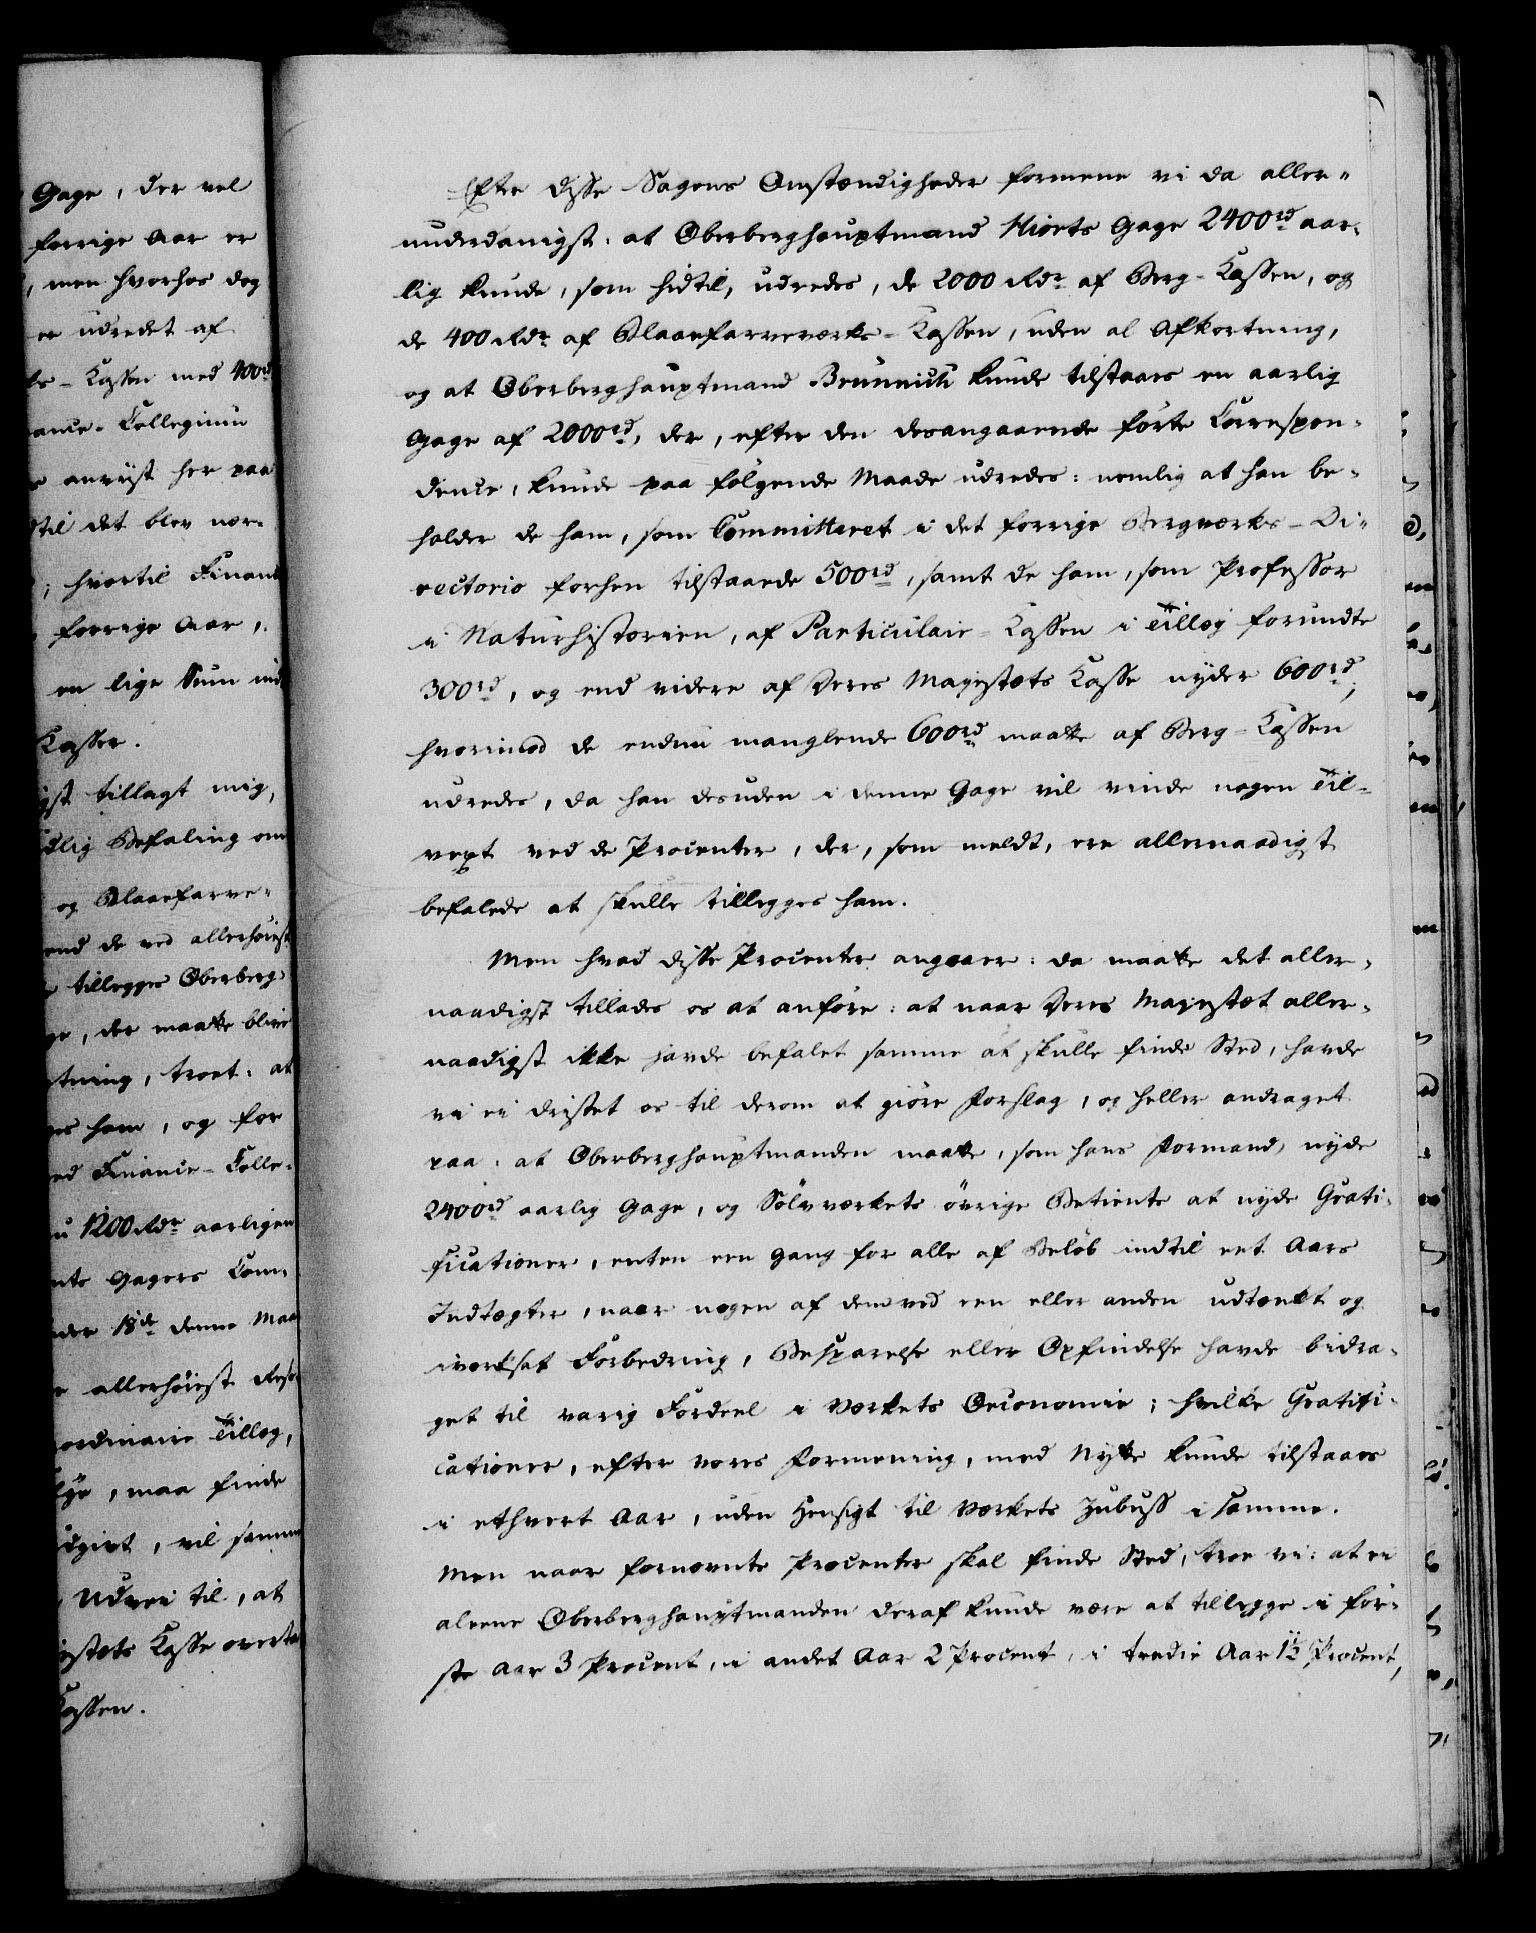 Gage, der vel
forrige Aar er
, men hvorhos dog
er udredet af
ks-Kassen med 400rd
ance-Collegium
anviist her paa
dtil det blev nær-
; hvortil Finance
forrige Aar,
en lige Sum ind
Kasser.
gst tillagt mig,
dlig Befaling om
og Blaaefarve-
end de ved allerhøiest
tillegges Oberberg-
ge, der maatte blive
tning, troet: at
es ham, og for
ed Finance-Colle-
u 1200 Rdr aarligen
nts Gagers Com-
der 18de denne Maa
allerhøiest Reso-
ordinaire Tillæg,
lge, maa finde
dgivt, vil samme
Udvei til, at
estæts Kasse overta
Kassen.
Efter disse Sagens Omstændigheder formene vi da aller-
underdanigst: at Oberberghauptmand Hiorts Gage 2400rd aar-
lig kunde, som hidtil, udredes, de 2000 Rdr af Berg-Kassen, og
de 400 Rdr af Blaaefarveværks-Kassen, uden al Afkortning,
og at Oberberghauptmand Brünnich kunde tilstaaes en aarlig
Gage af 2000rd, der, efter den desangaaende førte Correspon-
dence, kunde paa følgende Maade udredes: nemlig at han be-
holder de ham, som Committeret i det forrige Bergværks-Di-
rectorio forhen tilstaaede 500rd, samt de ham, som Professor
i Naturhistorien, af Particulair-Kassen i Tillæg forundte
300rd, og end videre af Deres Majestæts Kasse nyder 600rd;
hvorimod de endnu manglende 600rd maatte af Berg-Kassen
udredes, da han desuden i denne Gage vil vinde nogen Til-
vext ved de Procenter, der, som meldt, ere allernaadigst
befalede at skulle tillegges ham.
Men hvad disse Procenter angaaer: da maatte det aller-
naadigst tillades os at anføre: at naar Deres Majestæt aller-
naadigst ikke havde befalet samme at skulle finde Sted, havde
vi ei dristet os til derom at giøre Forslag, og heller andraget
paa: at Oberberghauptmanden maatte, som hans Formand, nyde
2400rd aarlig Gage, og Sølvværkets øvrige Betiente at nyde Grati-
ficationer, enten een Gang for alle af Beløb indtil eet Aars
Indtægter, naar nogen af dem ved een eller anden udtænkt og
iværksat Forbedring, Besparelse eller Opfindelse havde bidra-
get til varig Fordeel i Værkets Oeconomie; hvilke Gratifi-
cationer, efter vores Formening, med Nytte kunde tilstaaes
i ethvert Aar, uden Hensigt til Værkets Zubuss i samme.
Men naar fornævnte Procenter skal finde Sted, troe vi: at ei
aleene Oberberghauptmanden deraf kunde være at tillegge i før-
ste Aar 3 Procent, i andet Aar 2 Procent, i tredie Aar 1½ Procent,